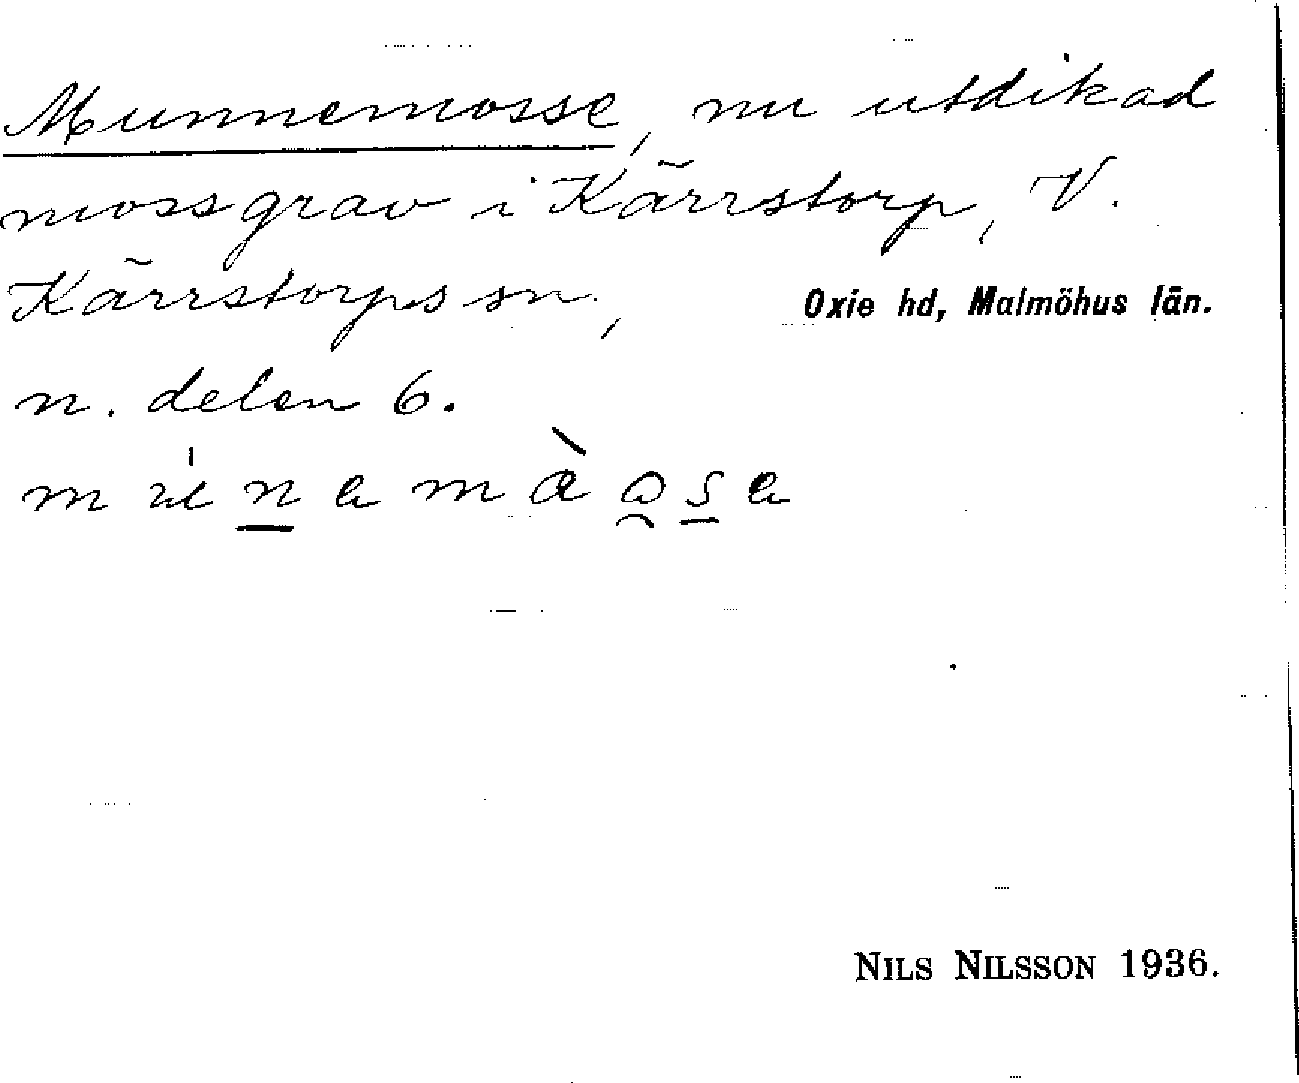 Munnemosse, nu utdikad
mossgrav i Kärrstorp, V.
Kärrstorps sn., Oxie hd, Malmöhus län.
n. delen 6.
NILS NILSSON 1936.